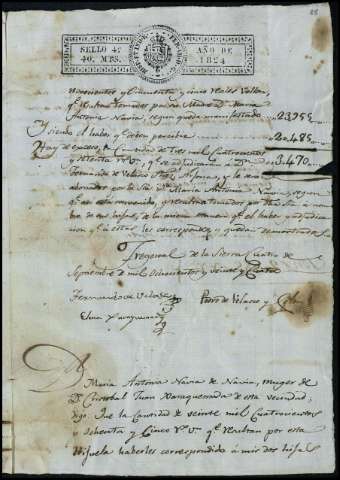 88
SELLO 4º
40. MRS.
AÑO DE
1824
novecientos y Cincuenta y cinco reales Vellon,
qº resultan por su Madre Dª Maria
Antonia Navia, segun queda manifestado 23955
Y siendo el haber y lexitima percibir 20.485
Hay de exceso, la Cantidad de Tres mil Cuatrocientos
y setenta rsVn. qº se adjudican a Dn 3.470
Fernando de Velasco
por la Sra Dª Maria Antonia Navia, segun
bre de sus hijas, de la misma manera qº el haber y adjudica
cion qº a estas les corresponde, y quedan demostrados
Fregenal de la Sierra Cuatro de
Septiembre de mil Ochocientos y veinte y Cuatro
Fernando de Velasco Pedro de Velasco y
Elena y
Dª Maria Antonia Navia de Navia, muger de
Dn Cristobal Juan de esta vecindad,
digo: Que la Cantidad de veinte mil Cuatrocientos
y Ochenta y Cinco rs Vn qº resultan por esta
Hijuela haberles correspondido a mis dos hijas